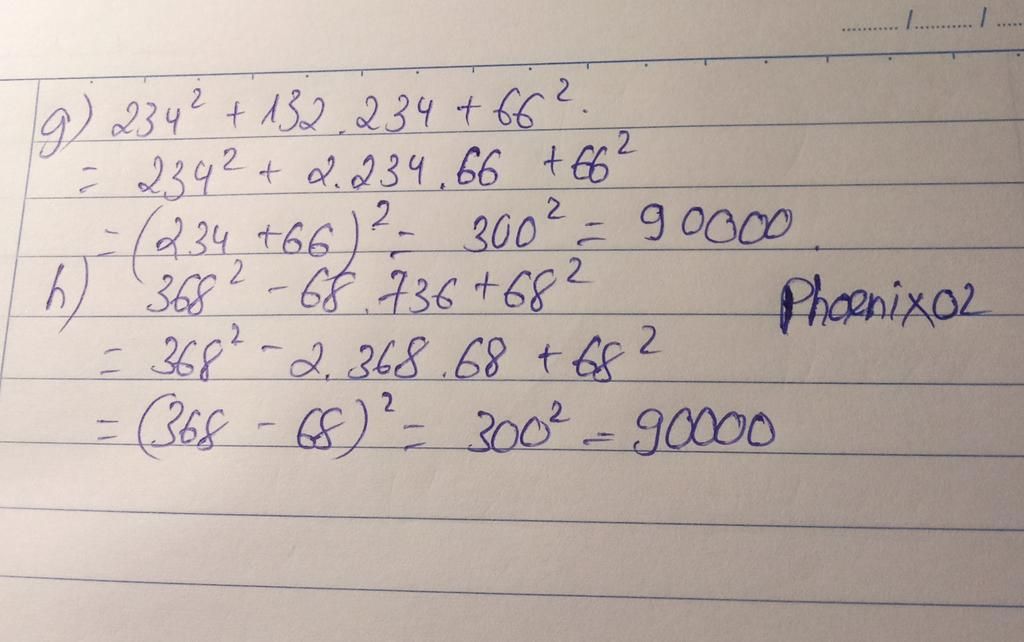 g) 234² + 132 . 234 + 66².
= 234² + 2.234.66 + 66²
= (234 + 66)² = 300² = 90000.
h) 368² - 68.736 + 68²
Phoenix02
= 368² - 2.368.68 + 68²
= (368 - 68)² = 300² = 90000